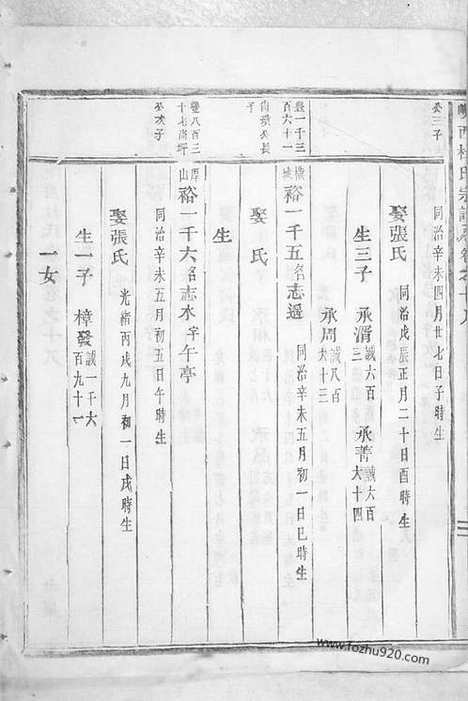 公三子
同治辛未四月廿七日子時生
娶張氏 同治戊辰正月二十日酉時生
生三子 承湑 誠六百 承菁 誠六百大十四
承周 誠八百大十三
卷一千三百六十一
公長子
裕一千五名志邁 同治辛未五月初一日巳時生
娶 氏
生
卷八百三十七
公次子
厚山
裕一千六名志水字午亭
同治辛未五月初五日午時生
娶張氏 光緒丙戌九月初一日戌時生
生一子 樟發 誠一千六百九十一
一女
www.fozhu920.com